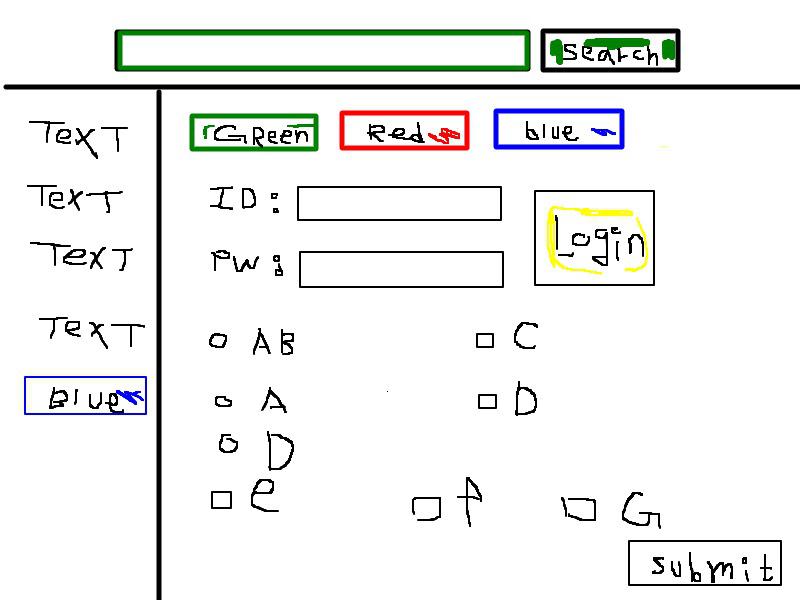 Search
TexT
TexT
TexT
TexT
blue
GReen Red blue
ID:
PW:
Login
AB C
A D
D
e f G
submit